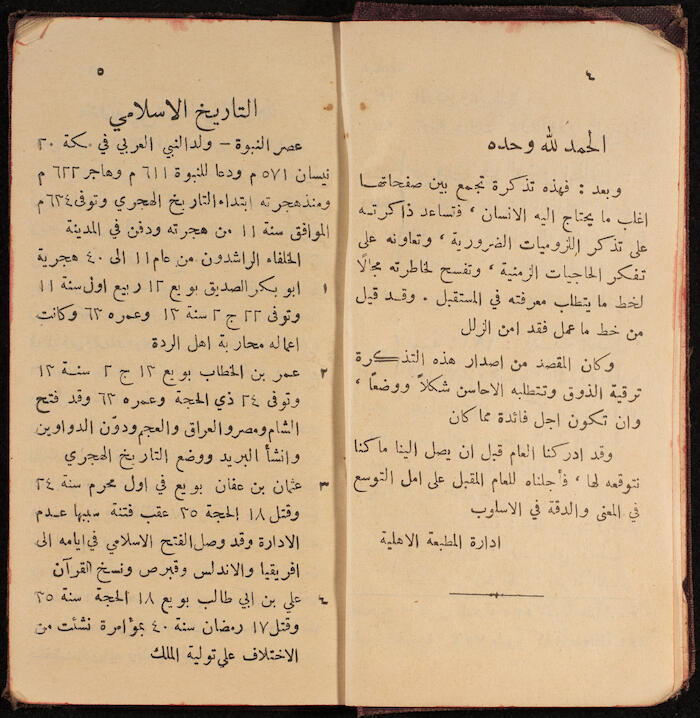 ٤
الحمد لله وحده
وبعد : فهذه تذكرة تجمع بين صفحاتها
اغلب ما يحتاج اليه الانسان ، فتساعد ذاكرته
على تذكر اللزوميات الضرورية ، وتعاونه على
تفكر الحاجيات الزمنية ، وتفسح لخاطرته مجالاً
لخط ما يتطلب معرفته في المستقبل . وقد قيل
من خط ما عمل فقد امن الزلل
وكان المقصد من اصدار هذه التذكرة
ترقية الذوق وتتطلبه الاحاسن شكلاً ووضعاً ،
وان تكون اجل فائدة مما كان
وقد ادركنا العام قبل ان يصل الينا ما كنا
نتوقعه لها ، فأجلناه للعام المقبل على امل التوسع
في المعنى والدقة في الاسلوب
ادارة المطبعة الاهلية
٥
التاريخ الاسلامي
عصر النبوة – ولد النبي العربي في مكة ٢٠
نيسان ٥٧١ م ودعا للنبوة ٦١١ م وهاجر ٦٢٢ م
ومنذ هجرته ابتداء التاريخ الهجري وتوفى ٦٣٤ م
الموافق سنة ١١ من هجرته ودفن في المدينة
الخلفاء الراشدون من عام ١١ الى ٤٠ هجرية
١ ابو بكر الصديق بويع ١٢ ربيع اول سنة ١١
وتوفى ٢٢ ج ٢ سنة ١٣ وعمره ٦٣ وكانت
اعماله محاربة اهل الردة
٢ عمر بن الخطاب بويع ١٣ ج ٢ سنة ١٣
وتوفى ٢٤ ذي الحجة وعمره ٦٣ وقد فتح
الشام ومصر والعراق والعجم ودوّن الدواوين
وانشأ البريد ووضع التاريخ الهجري
٣ عثمان بن عفان بويع في اول محرم سنة ٢٤
وقتل ١٨ الحجة ٣٥ عقب فتنة سببها عدم
الادارة وقد وصل الفتح الاسلامي في ايامه الى
افريقيا والاندلس وقبرص ونسخ القرآن
٤ علي بن ابي طالب بويع ١٨ الحجة سنة ٣٥
وقتل ١٧ رمضان سنة ٤٠ بمؤامرة نشئت من
الاختلاف على تولية الملك